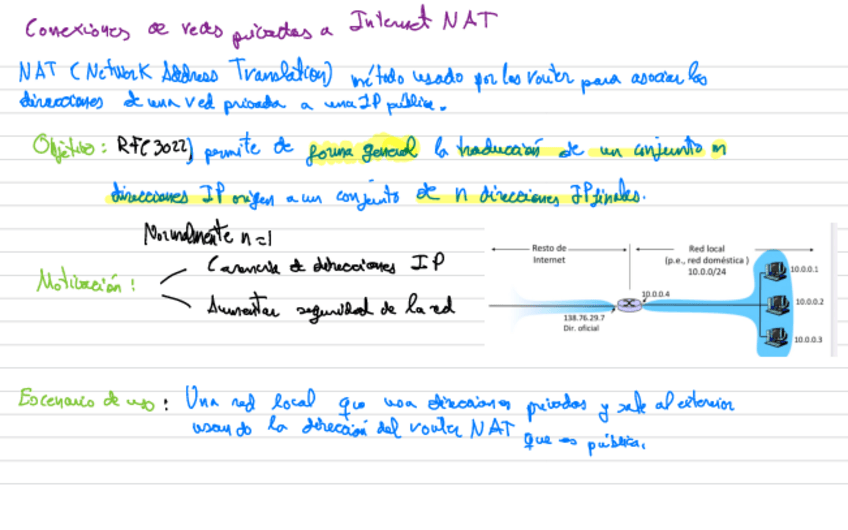 Conexiones de redes privadas a Internet NAT
NAT (Network Address Translation) método usado por los router para asociar las
direcciones de una red privada a una IP pública.
Objetivo: RFC 3022) permite de forma general la traducción de un conjunto m
direcciones IP origen a un conjunto de n direcciones IP finales.
Normalmente n=1
Motivación:
Carencia de direcciones IP
Aumentar seguridad de la red
Resto de
Internet
Red local
(p.e., red doméstica )
10.0.0/24
10.0.0.1
10.0.0.4
10.0.0.2
138.76.29.7
Dir. oficial
10.0.0.3
Escenario de uso: Una red local que usa direcciones privadas y sale al exterior
usando la dirección del router NAT que es pública.